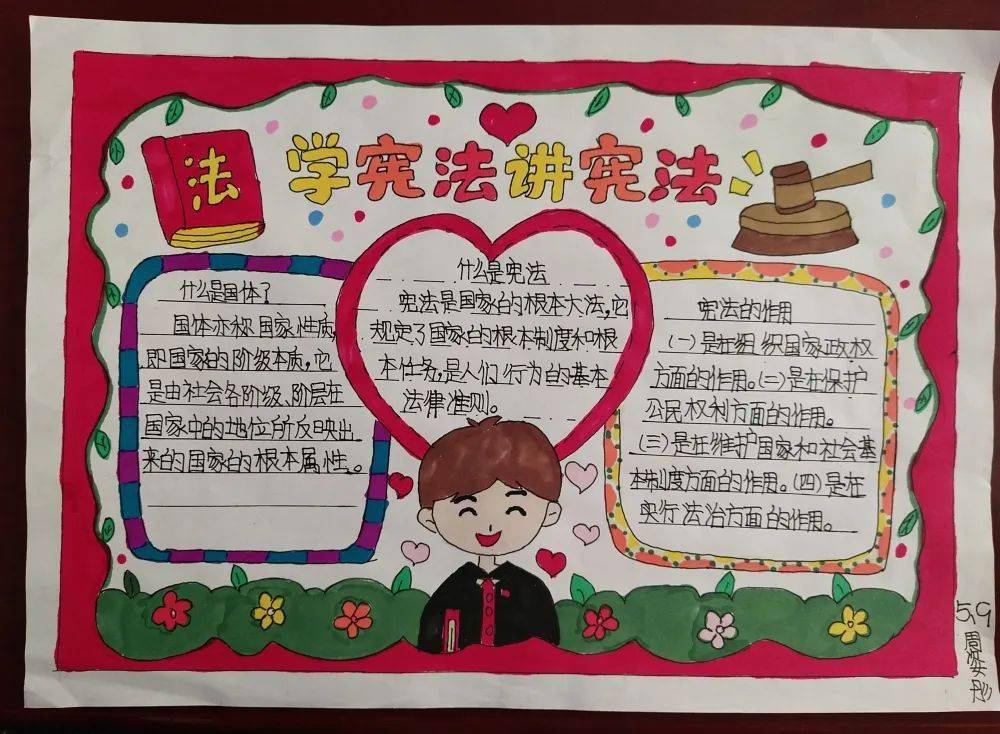 法
学宪法讲宪法
什么是国体?
国体亦称国家性质,
即国家的阶级本质,它
是由社会各阶级、阶层在
国家中的地位所反映出
来的国家的根本属性。
什么是宪法
宪法是国家的根本大法,它
规定了国家的根本制度和根
本任务,是人们行为的基本
法律准则。
宪法的作用
(一)是在组织国家政权
方面的作用。(二)是在保护
公民权利方面的作用。
(三)是在维护国家和社会基
本制度方面的作用。(四)是在
实行法治方面的作用。
5.9
周
彤